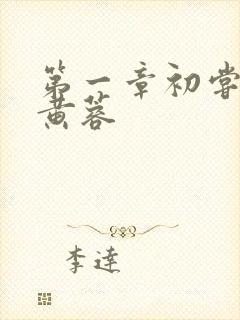 第一章初尝
黄蓉
李達